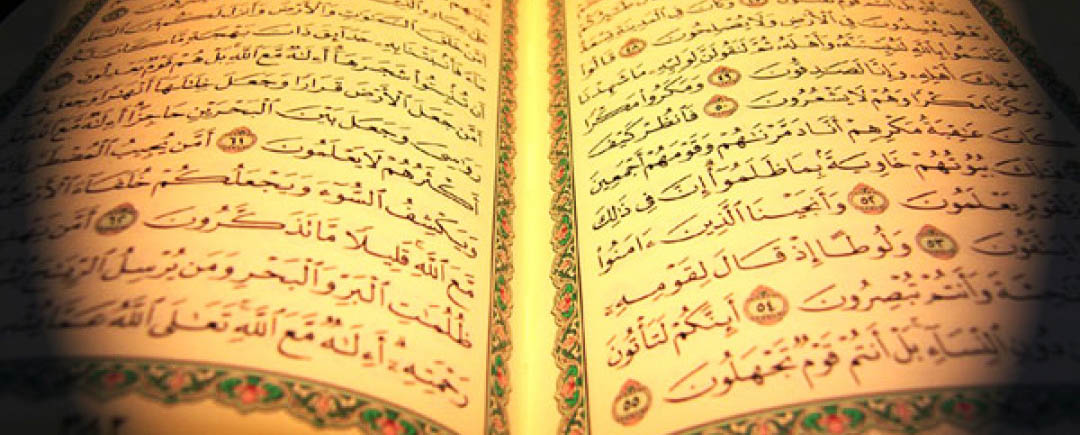 وَكَانَ فِى ٱلْمَدِينَةِ تِسْعَةُ
يُفْسِدُونَ فِى ٱلْأَرْضِ وَلَا يُصْلِحُونَ ٤٨ قَالُوا۟
تَقَاسَمُوا۟ بِٱللَّهِ لَنُبَيِّتَنَّهُۥ وَأَهْلَهُۥ ثُمَّ لَنَقُولَنَّ لِوَلِيِّهِۦ مَا شَهِدْنَا
مَهْلِكَ أَهْلِهِۦ وَإِنَّا لَصَٰدِقُونَ ٤٩ وَمَكَرُوا۟ مَكْرًا
وَمَكَرْنَا مَكْرًا وَهُمْ لَا يَشْعُرُونَ ٥٠ فَٱنظُرْ كَيْفَ
كَانَ عَٰقِبَةُ مَكْرِهِمْ أَنَّا دَمَّرْنَٰهُمْ وَقَوْمَهُمْ أَجْمَعِينَ
فَتِلْكَ بُيُوتُهُمْ خَاوِيَةًۢ بِمَا ظَلَمُوٓا۟ إِنَّ فِى ذَٰلِكَ
لِّقَوْمٍ يَعْلَمُونَ ٥٢ وَأَنجَيْنَا ٱلَّذِينَ ءَامَنُوا۟
يَتَّقُونَ ٥٣ وَلُوطًا إِذْ قَالَ لِقَوْمِهِۦٓ
وَأَنتُمْ تُبْصِرُونَ ٥٤ أَئِنَّكُمْ لَتَأْتُونَ
ٱلنِّسَآءِ بَلْ أَنتُمْ قَوْمٌ تَجْهَلُونَ ٥٥
أَمَّنْ خَلَقَ ٱلسَّمَٰوَٰتِ وَٱلْأَرْضَ وَأَنزَلَ لَكُم
مَآءً فَأَنۢبَتْنَا بِهِۦ حَدَآئِقَ ذَاتَ بَهْجَةٍ مَّا كَانَ
أَن تُنۢبِتُوا۟ شَجَرَهَآ أَءِلَٰهٌ مَّعَ ٱللَّهِ بَلْ هُمْ قَوْمٌ يَعْدِلُونَ
أَمَّن جَعَلَ ٱلْأَرْضَ قَرَارًا وَجَعَلَ خِلَٰلَهَآ أَنْهَٰرًا وَجَعَلَ
رَوَٰسِىَ وَجَعَلَ بَيْنَ ٱلْبَحْرَيْنِ حَاجِزًا أَءِلَٰهٌ مَّعَ
أَكْثَرُهُمْ لَا يَعْلَمُونَ ٦١ أَمَّن يُجِيبُ ٱلْمُضْطَرَّ
وَيَكْشِفُ ٱلسُّوٓءَ وَيَجْعَلُكُمْ خُلَفَآءَ ٱلْأَرْضِ
مَّعَ ٱللَّهِ قَلِيلًا مَّا تَذَكَّرُونَ ٦٢ أَمَّن
ظُلُمَٰتِ ٱلْبَرِّ وَٱلْبَحْرِ وَمَن يُرْسِلُ ٱلرِّيَٰحَ
رَحْمَتِهِۦٓ أَءِلَٰهٌ مَّعَ ٱللَّهِ تَعَٰلَى ٱللَّهُ عَمَّا